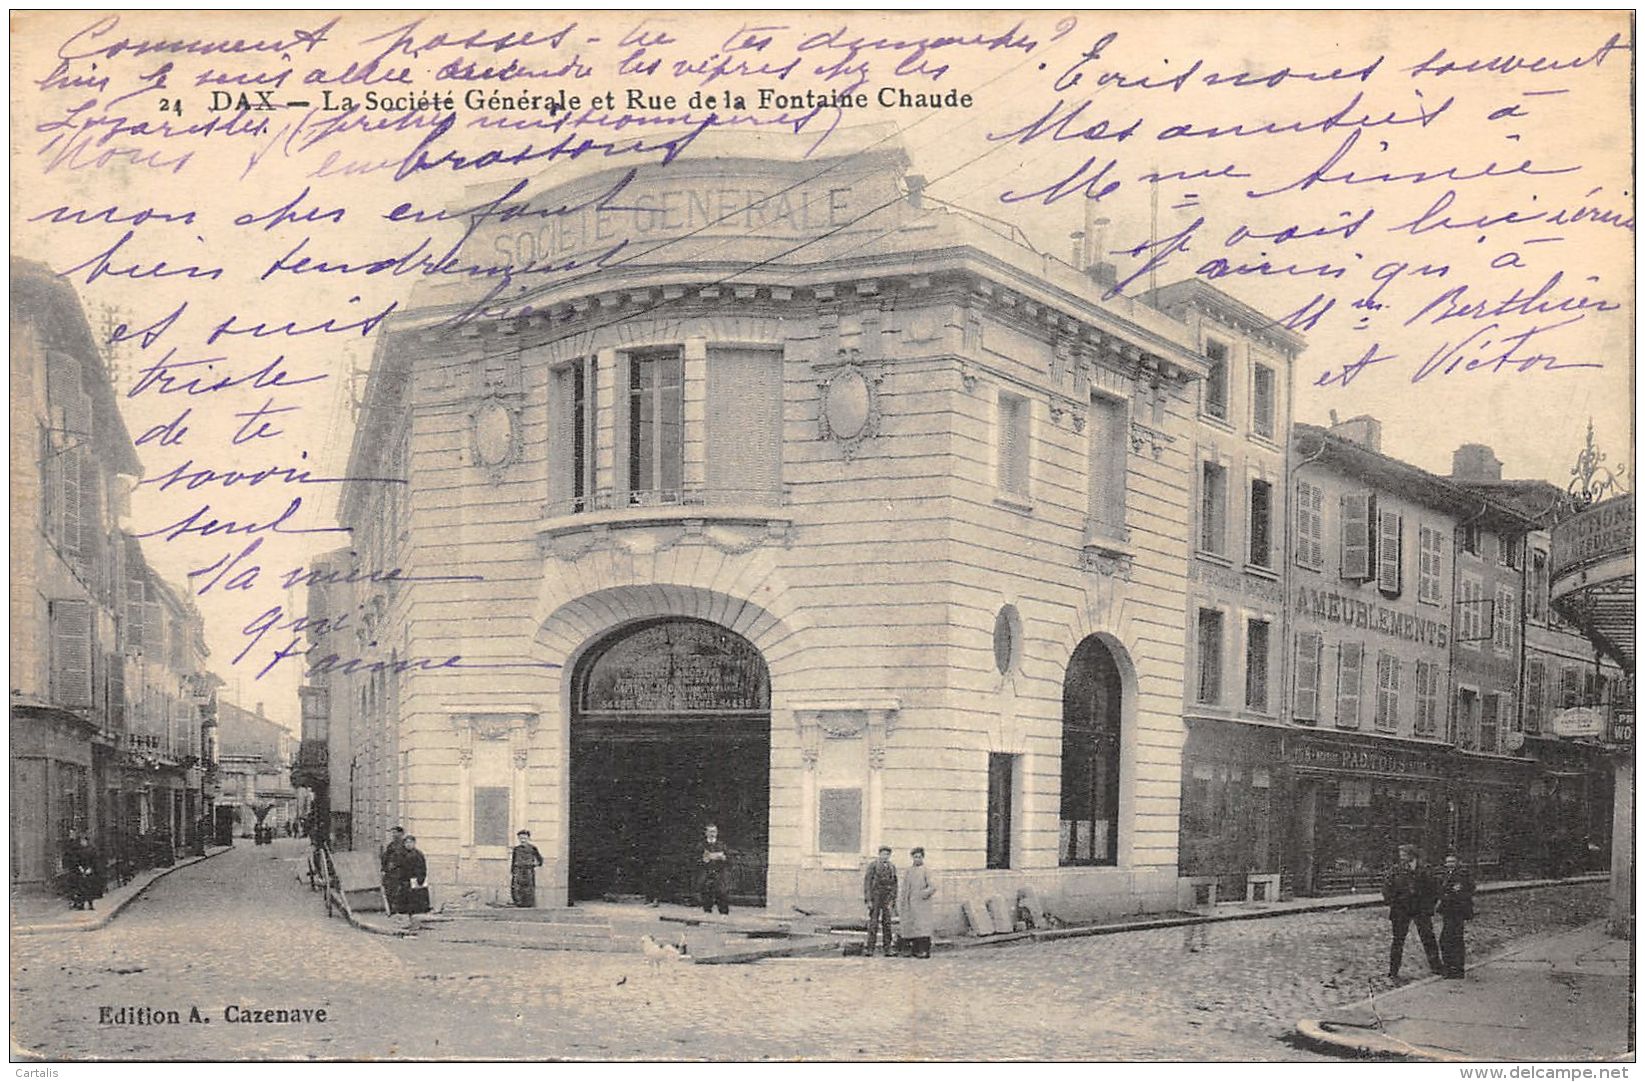 Comment passes-tu tes dimanches?
je suis allée entendre les vêpres chez les
24 DAX — La Société Générale et Rue de la Fontaine Chaude
Lazaristes (prêtres missionnaires)
Nous embrassons
mon cher enfant
bien tendrement
et suis bien
triste
de te
savoir
seul
Ta mère
qui
t'aime
Ecris nous souvent
Mes amitiés à
Mme Aimée
je vais lui écrire
ainsi qu'à
Mme Berthier
et Victor
SOCIÉTÉ GÉNÉRALE
AMEUBLEMENTS
Edition A. Cazenave
Cartalis
delcampe.net